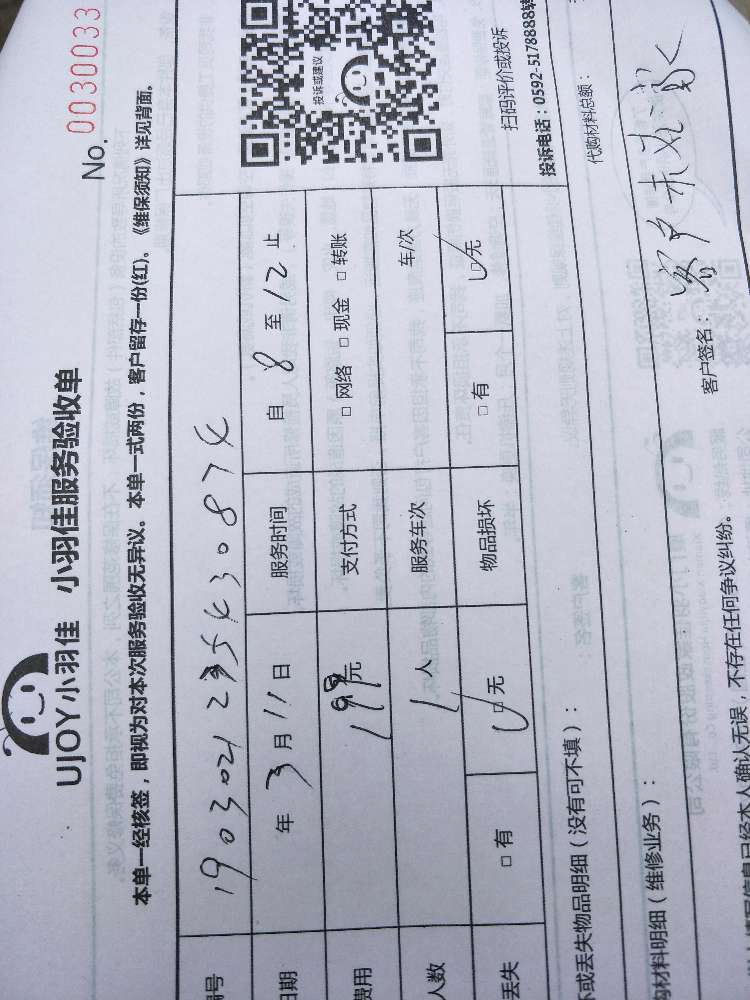 UJOY小羽佳 小羽佳服务验收单
No. 0030033
本单一经核签，即视为对本次服务验收无异议。本单一式两份，客户留存一份(红)。《维保须知》详见背面。
号 190302
日期 年 3 月 11 日 服务时间 自 8 至 12 止
费用 元 支付方式 □ 网络 □ 现金 □ 转账
人数 1 人 服务车次 车/次
丢失 □ 有 □ 无 物品损坏 □ 有 □ 无
投诉或建议
扫码评价或投诉
投诉电话：0592-5178888转
坏或丢失物品明细（没有可不填）：
代购材料总额：
材料明细（维修业务）：
客户签名： 客户未在家
信息已经本人确认无误，不存在任何争议纠纷。